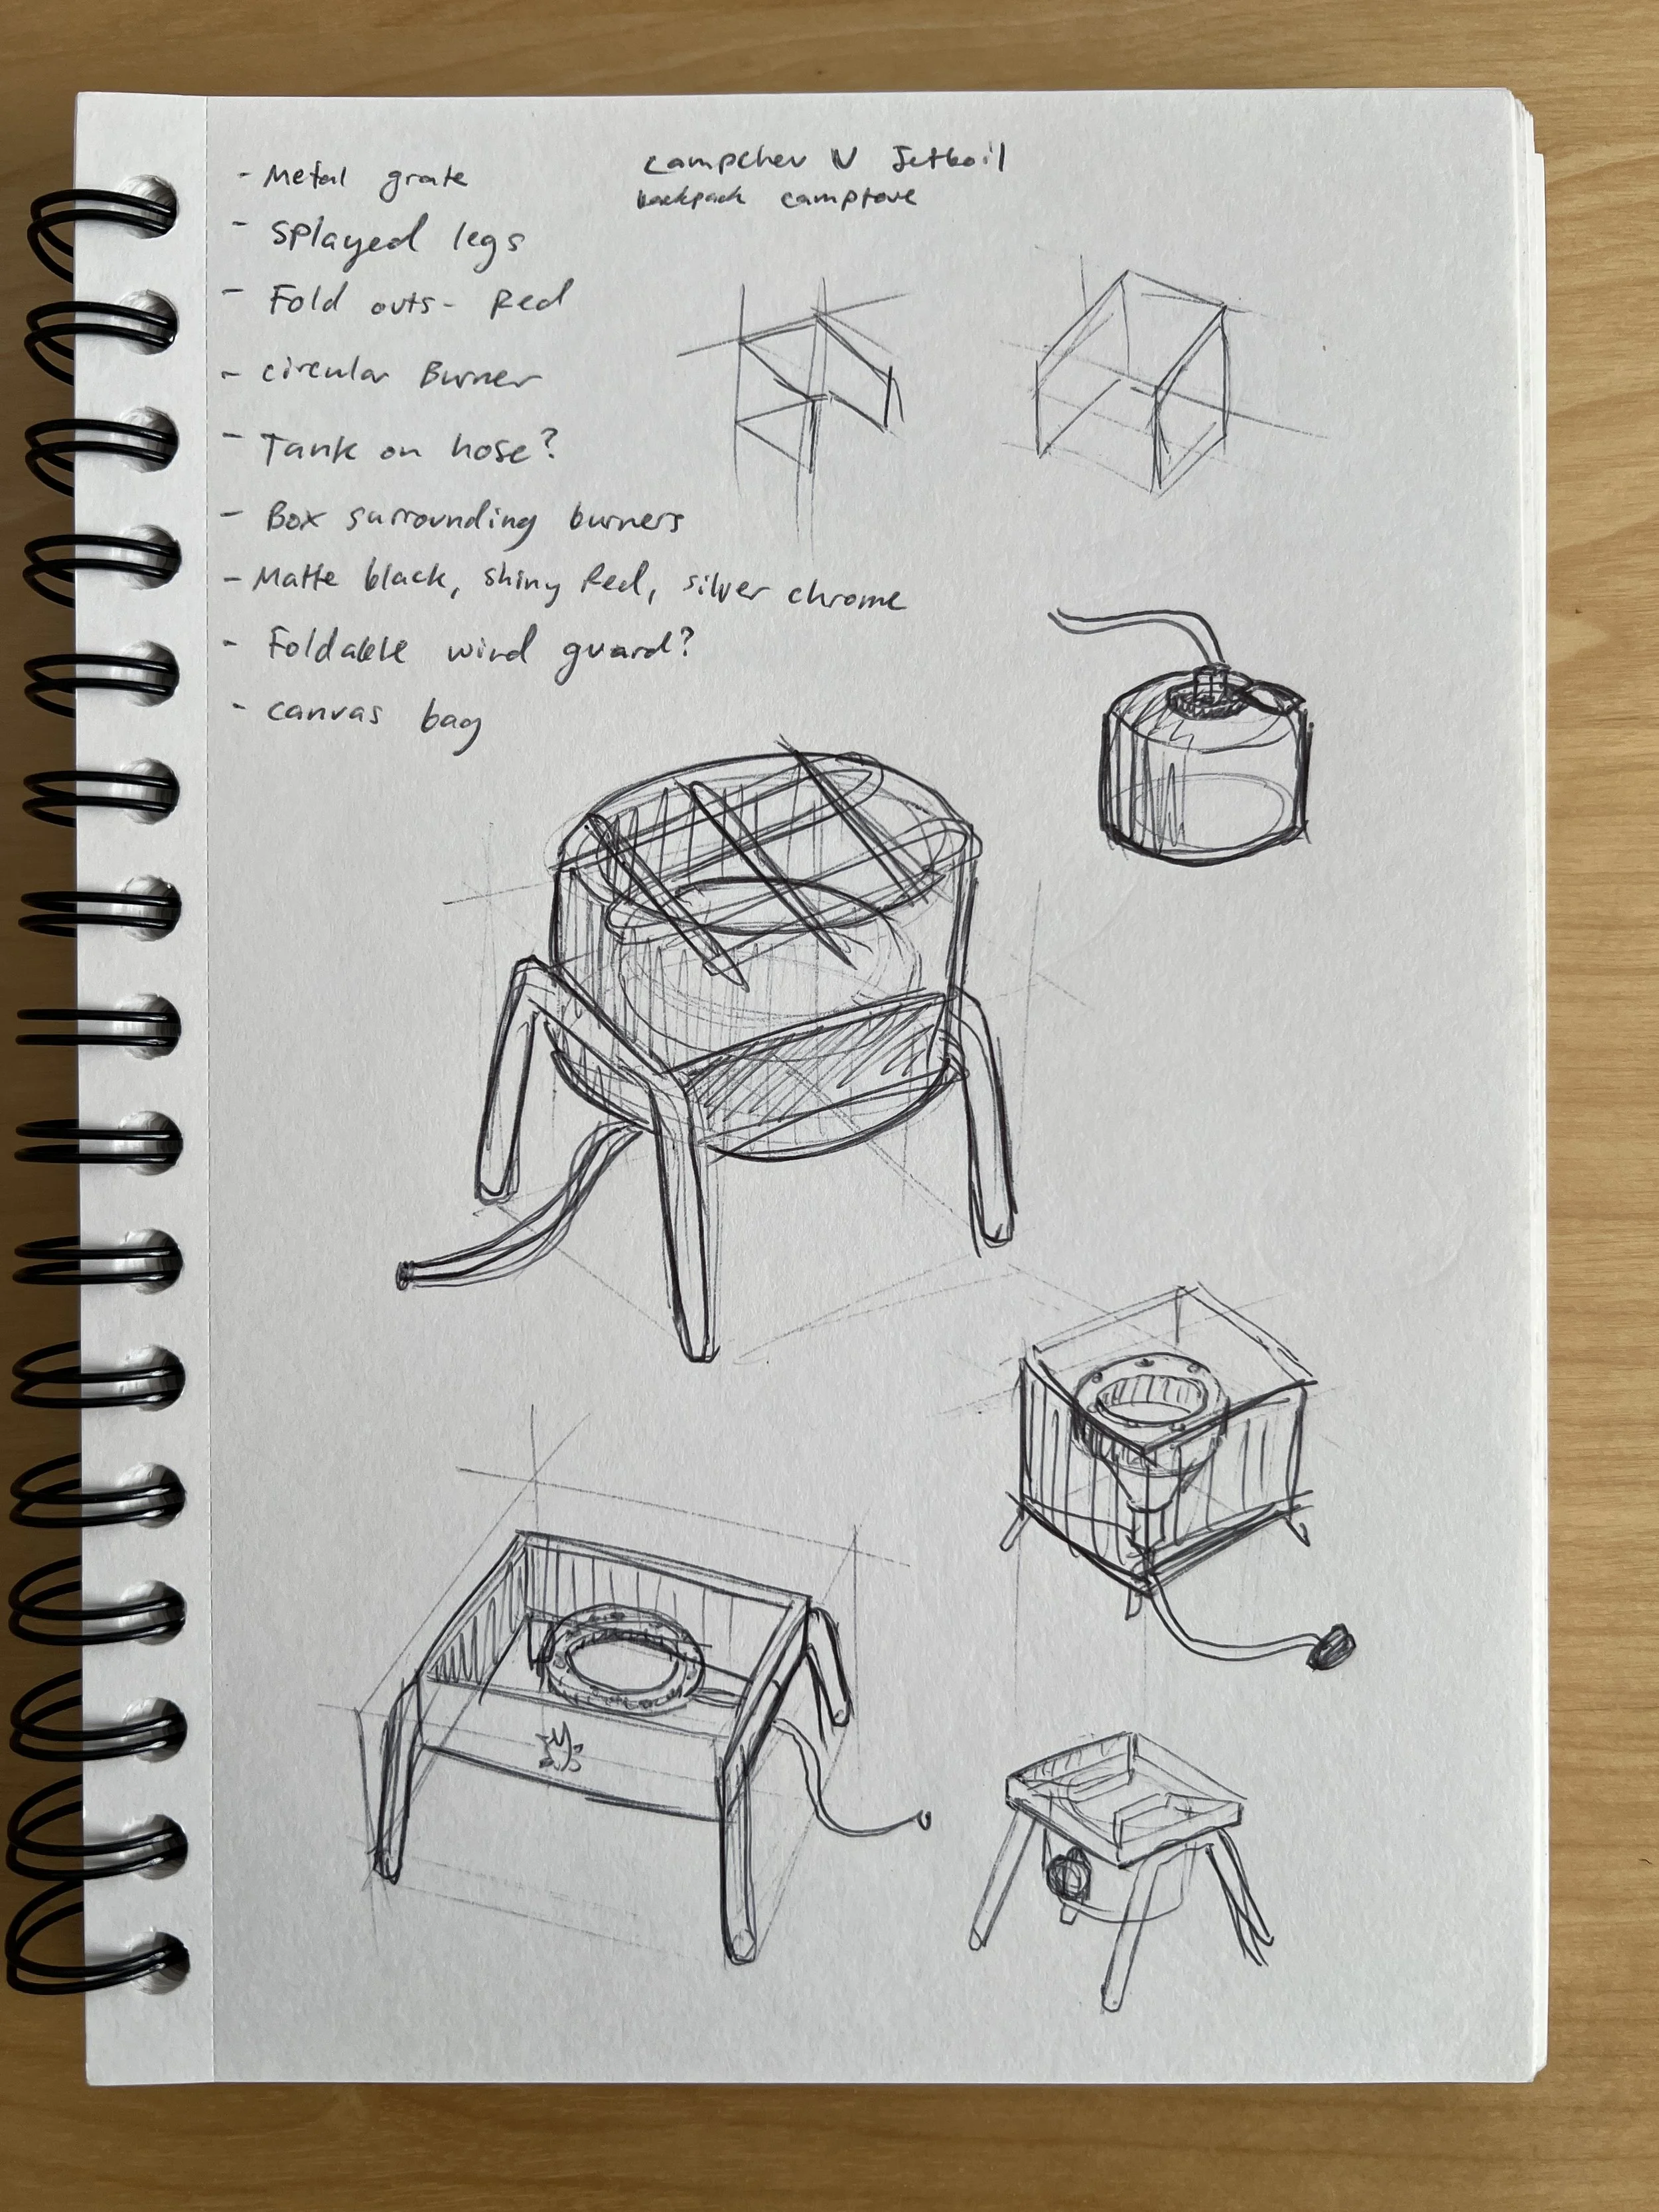 - Metal grate
- Splayed legs
- Fold outs - Red
- circular Burner
- Tank on hose?
- Box surrounding burners
- Matte black, shiny Red, silver chrome
- Foldable wind guard?
- canvas bag
campchev V Jetboil
backpack campstove